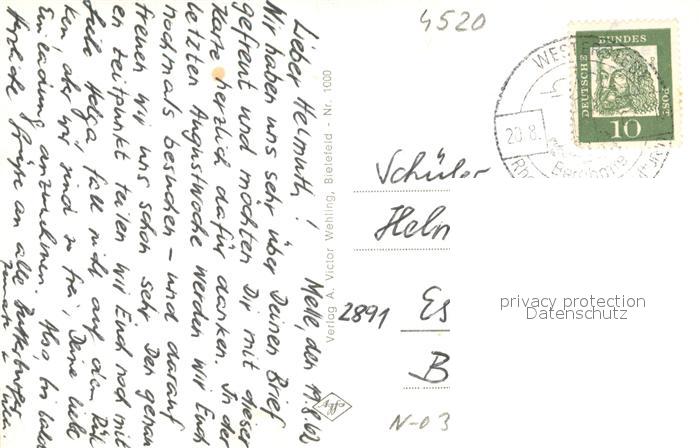 4520
Melle, den 19.8.62
Lieber Helmuth!
Wir haben uns sehr über Deinen Brief
gefreut und möchten Dir mit dieser
Karte herzlich dafür danken. In der
letzten Augustwoche werden wir Euch
nochmals besuchen – und darauf
freuen wir uns schon sehr. Den genau
en Zeitpunkt teilen wir Euch noch mit.
Liebe Helga
wir sind zu frei, Deine liebe
Einladung anzunehmen. Also, bis bald
Herzliche Grüße an alle
Verlag A. Victor Wehling, Bielefeld - Nr. 1000
DEUTSCHE BUNDES POST
10
20.8.
Schüler
Heln
2891 Es
B
N-03
privacy protection
Datenschutz